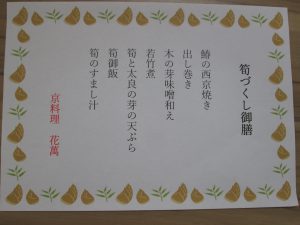 筍づくし御膳
鰆の西京焼き
出し巻き
木の芽味噌和え
若竹煮
筍と太良の芽の天ぷら
筍御飯
筍のすまし汁
京料理 花萬